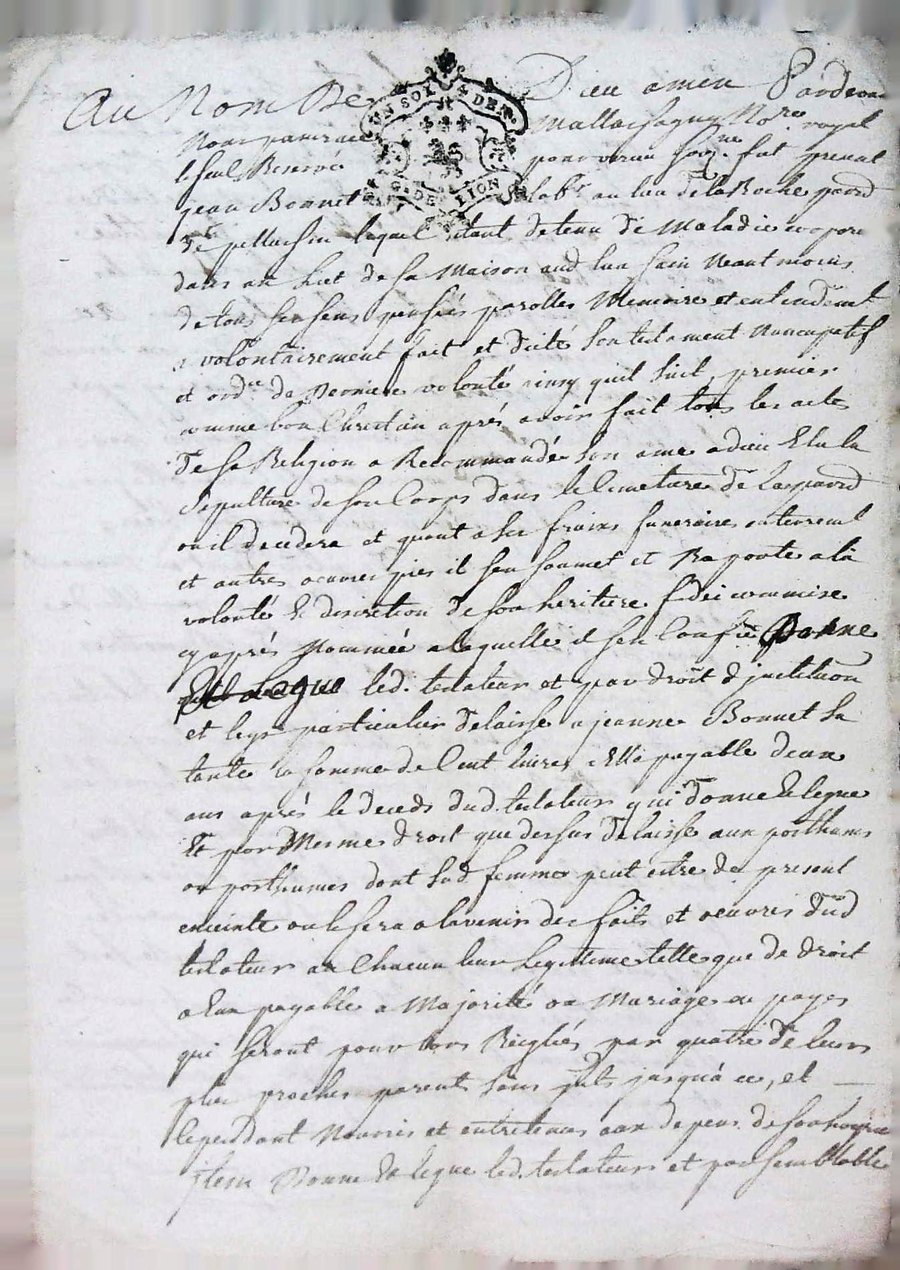 Au Nom De Dieu amen Pardevant
UN SOL 4 DEN
G DE LION
Nous pancrace Mallassagny No.re royal
le seul Reservé pour vernu soû.ne fut present
jean Bonnet lab.r au lieu de la Roche parr.
de pellussin lequel étant detenu de Maladie corpore
dans un lict de sa Maison aud lieu sain neantmoins
de tous ses sens pensées parolles Memoire et entendem.t
a volontairement fait et dicté son testament Nuncupatif
et ord.ce de Derniere volonté ainsy quil suit, premier
comme bon Chrestien aprés avoir fait tous les actes
de sa Religion a Recommandé son ame a dieu Elu la
sepulture de son Corps dans le Cimetiere de la parr.
ou il decedera et quant a ses fraix funeraires enterrem.t
et autres oeuvres pies il sen soumet et Raporte a la
volonté & discretion de son heritiere fideicommise
cy aprés Nommée a laquelle il sen Confie Donne
Et Legue led. testateur et par droit d'jnstitution
et legs particulier delaisse a jeanne Bonnet sa
tante la somme de Cent livres a Elle payable deux
ans aprés le deceds dud. testateur qui donne & legue
Et par Mesme droit que dessus delaisse aux posthumes
ou posthumes dont sad. femme peut estre de present
enceinte ou le sera a lavenir des faits et oeuvres dud
testateur a Chacun leur Legitime telle que de droit
a Eux payable a Majorité ou Mariage ou payes
qui seront pour lors Reiglés par quatre de leurs
plus proches parents sans jnts jusqu'a ce, et
Cependant Nourris et entretenus aux depens de son hoyrie
jtem Donne & legue led. testateur et par semblable